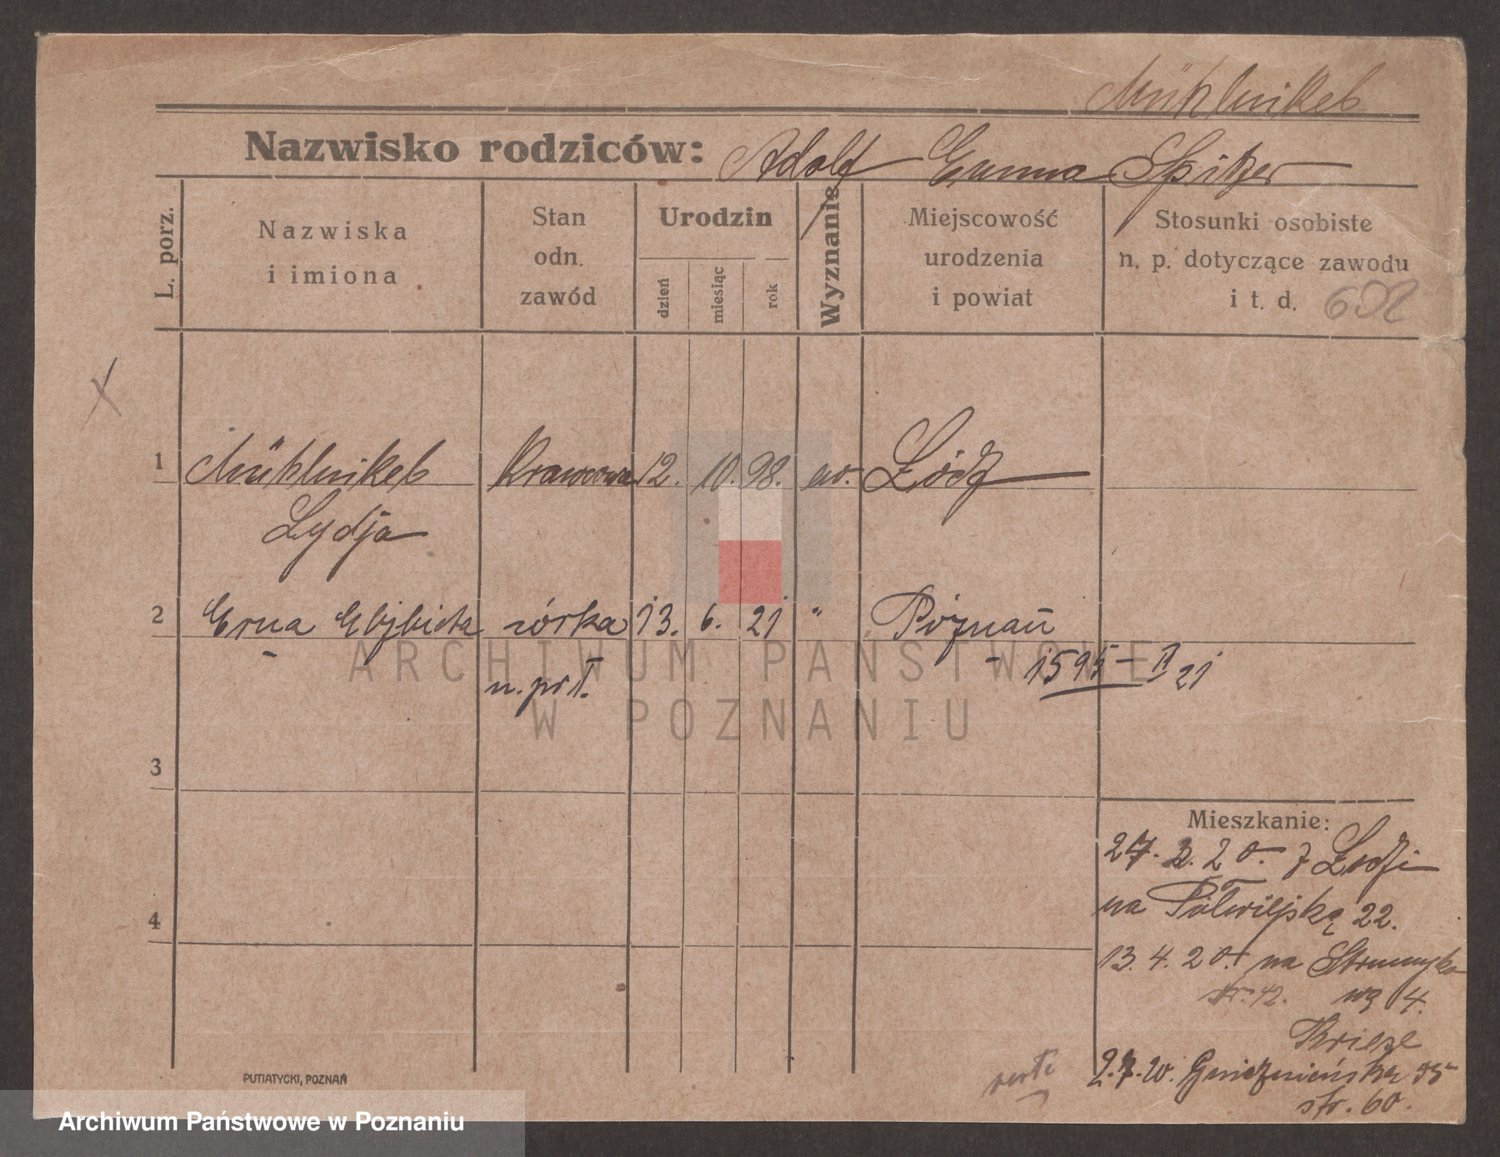 Mühlnikel
Nazwisko rodziców: Adolf Emma Spitzer
L. porz.
Nazwiska
i imiona
Stan
odn.
zawód
Urodzin
dzień
miesiąc
rok
Wyznanie
Miejscowość
urodzenia
i powiat
Stosunki osobiste
n. p. dotyczące zawodu
i t. d.
1 Mühlnikel Krawcowa 12. 10. 98. ew. Łódź
Lydja
2 Erna Elżbieta córka 13. 6. 21 " Poznań
n. prł. 1595 - II 21
3
4
Mieszkanie:
27. 2. 20. z Łodzi
na Półwiejską 22.
13. 4. 20. na Strumyko
str. 42. wą 4.
Kriese
2.7.20. Gnieźnieńska 55
str. 60.
verte
PUTIATYCKI, POZNAŃ
ARCHIWUM PAŃSTWOWE
W POZNANIU
Archiwum Państwowe w Poznaniu